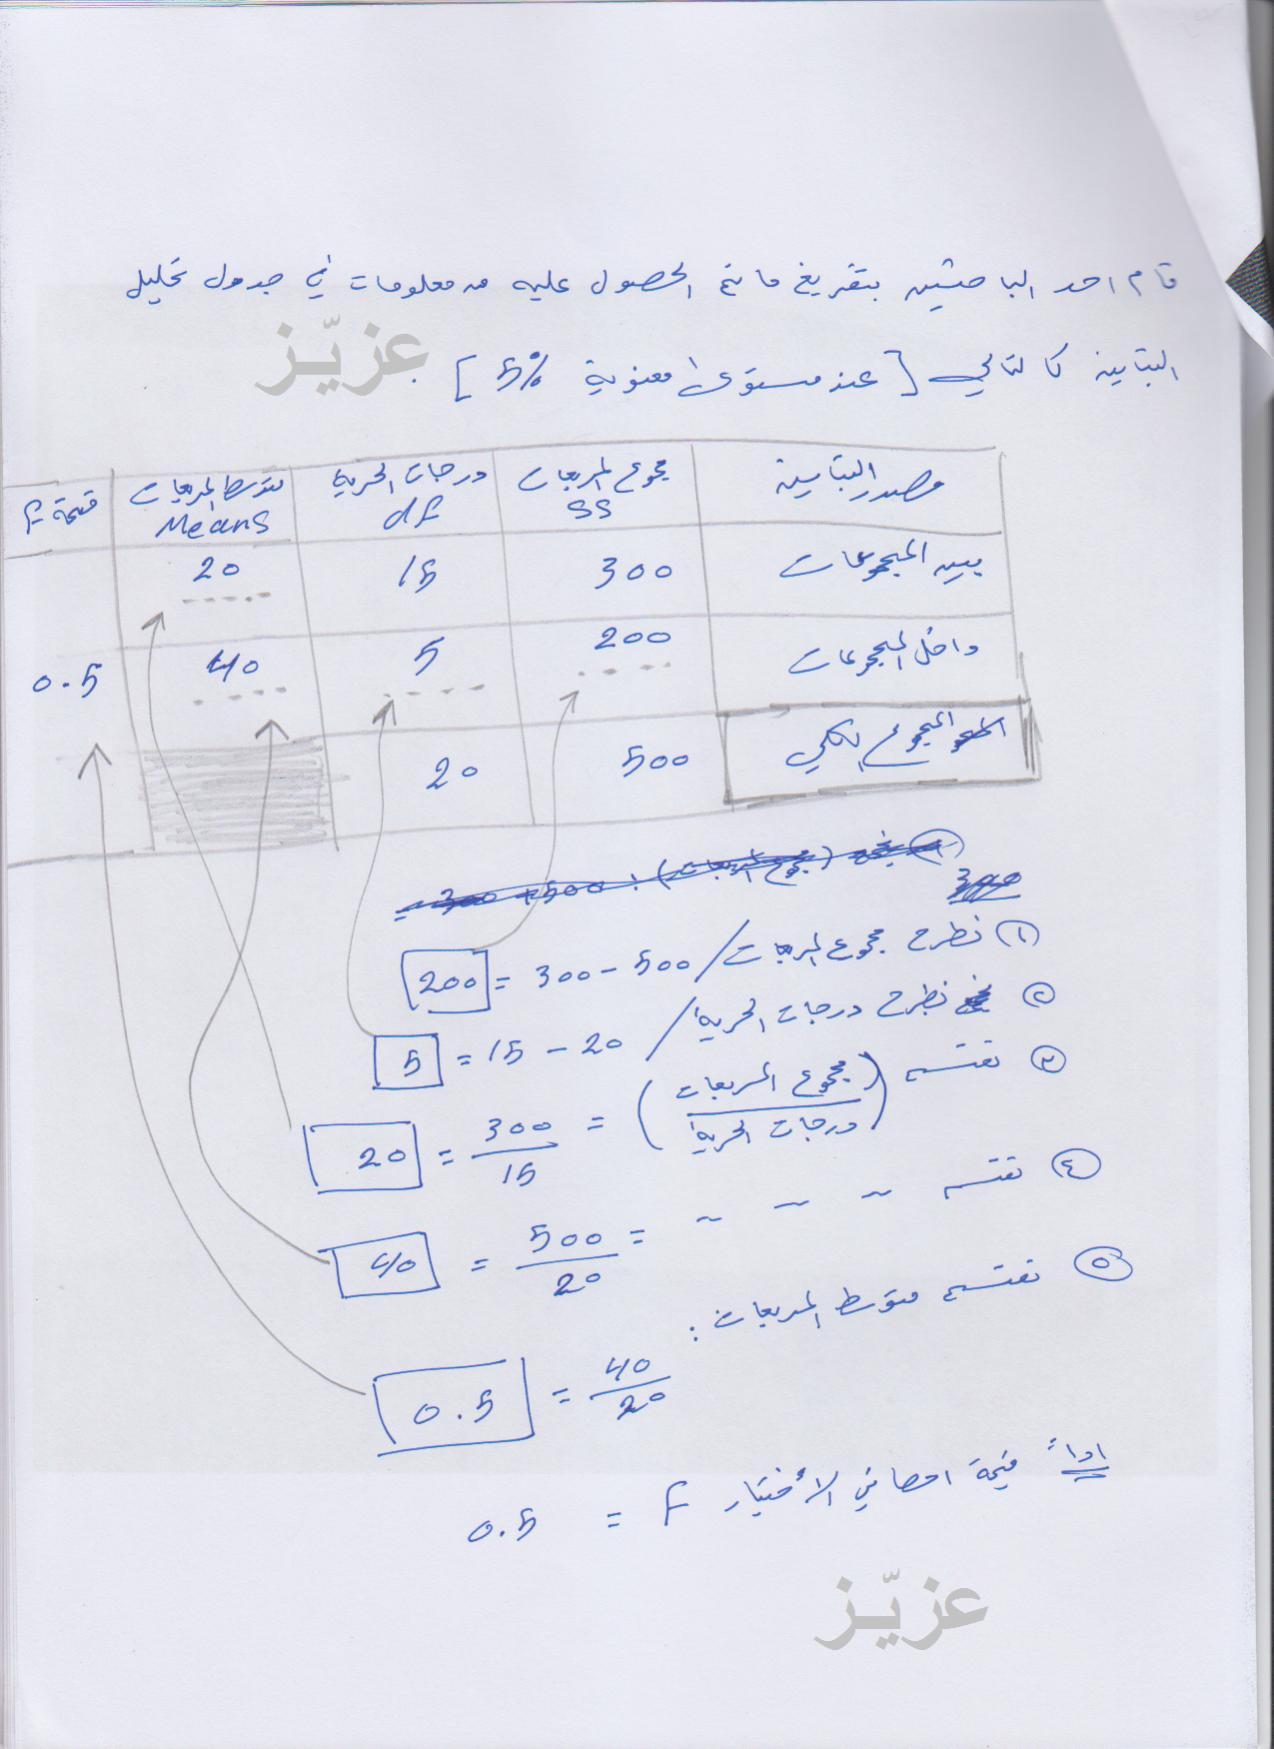 قام احد الباحثين بتفريغ ما تم الحصول عليه من معلومات في جدول تحليل
عزيّز
التباين كالتالي [عند مستوى معنوية 5%] .
مصدر التباين مجموع المربعات SS درجات الحرية df متوسط المربعات Means قيمة F
بين المجموعات 300 15 20
داخل المجموعات 200 5 40 0.5
المجموع الكلي 500 20
300
١) نطرح مجموع المربعات / 500 - 300 = 200
٢) نطرح درجات الحرية / 20 - 15 = 5
٣) نقسم (مجموع المربعات / درجات الحرية) = 300/15 = 20
٤) نقسم ~ ~ ~ = 500/20 = 40
٥) نقسم متوسط المربعات :
40/20 = 0.5
اذاً قيمة احصائي الأختبار F = 0.5
عزيّز